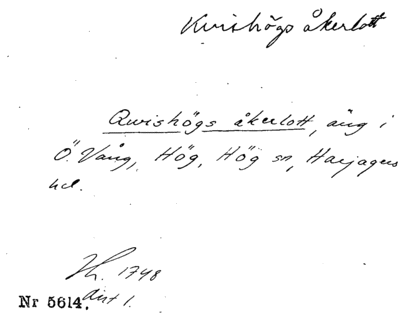 Kvishögs åkerlott
Qwishögs åkerlott, äng i
Ö. Vång, Hög, Hög sn, Harjagers
hd.
Lh. 1748
akt 1.
Nr 5614.